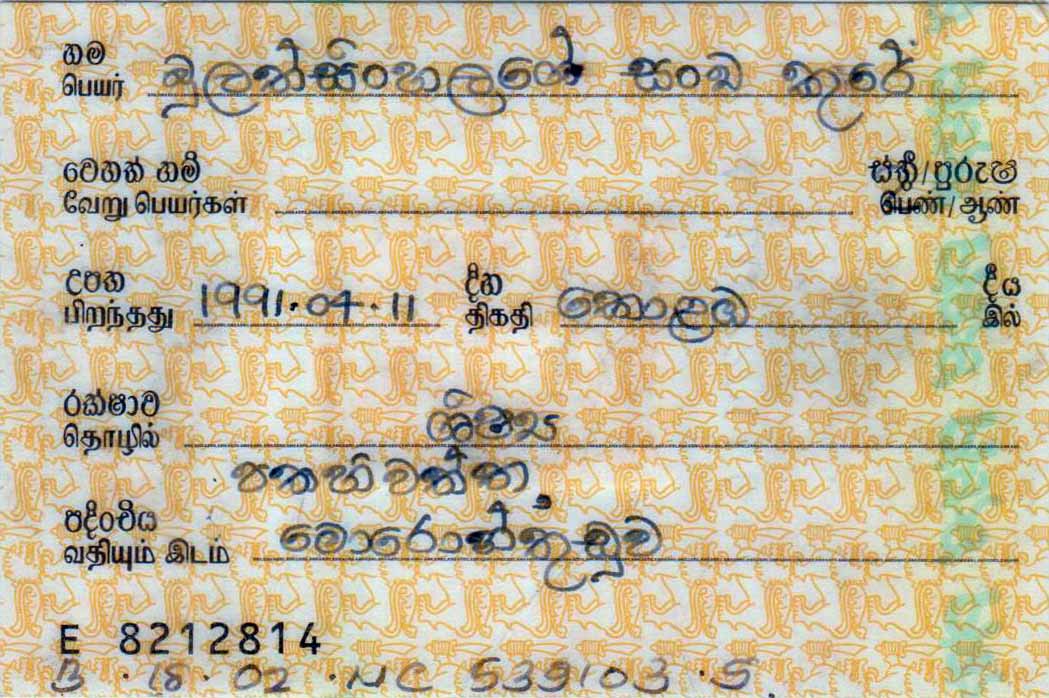 නම
பெயர் මුලත්සිංහලගේ සංඛ කුරේ
වෙනත් නම්
வேறு பெயர்கள்
ස්ත්‍රී/පුරුෂ
பெண்/ஆண்
උපත
பிறந்தது 1991.04.11
දින
திகதி කොළඹ
දීය
இல்
රක්ෂාව
தொழில் ශිෂ්‍ය
පදිංචිය
வதியும் இடம் මොරොන්තුඩුව
E 8212814
B . 18 . 02 . NC 539103 . S